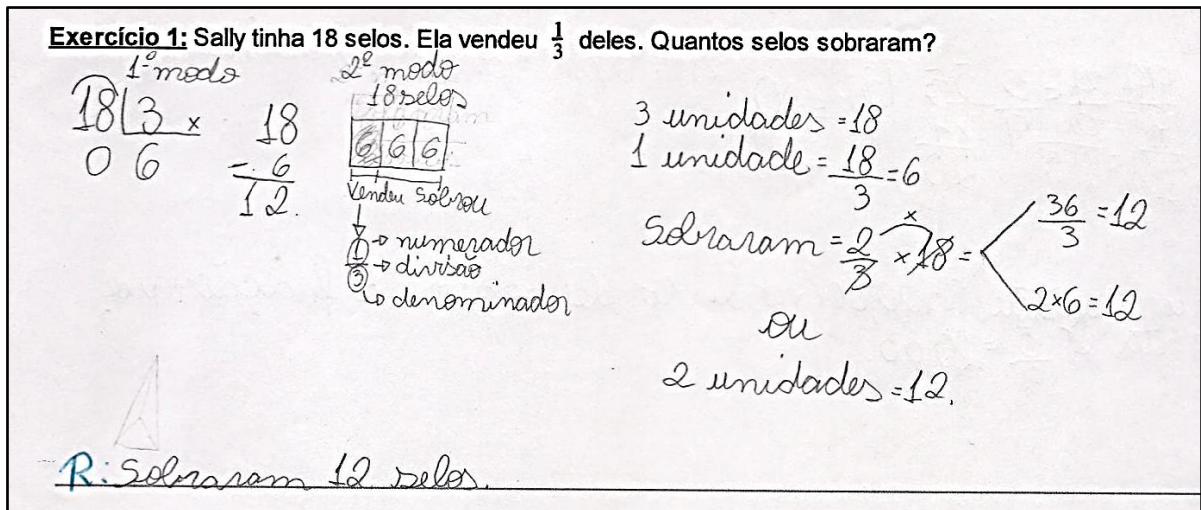 Exercício 1: Sally tinha 18 selos. Ela vendeu 1/3 deles. Quantos selos sobraram?
1º modo
18 | 3 x
0 6
18
- 6
12.
2º modo
18 selos
6 6 6
Vendeu Sobrou
1 → numerador
→ divisão
3 ↳ denominador
3 unidades = 18
1 unidade = 18/3 = 6
Sobraram = 2/3 × 18 =
36/3 = 12
2×6 = 12
ou
2 unidades = 12.
R: Sobraram 12 selos.